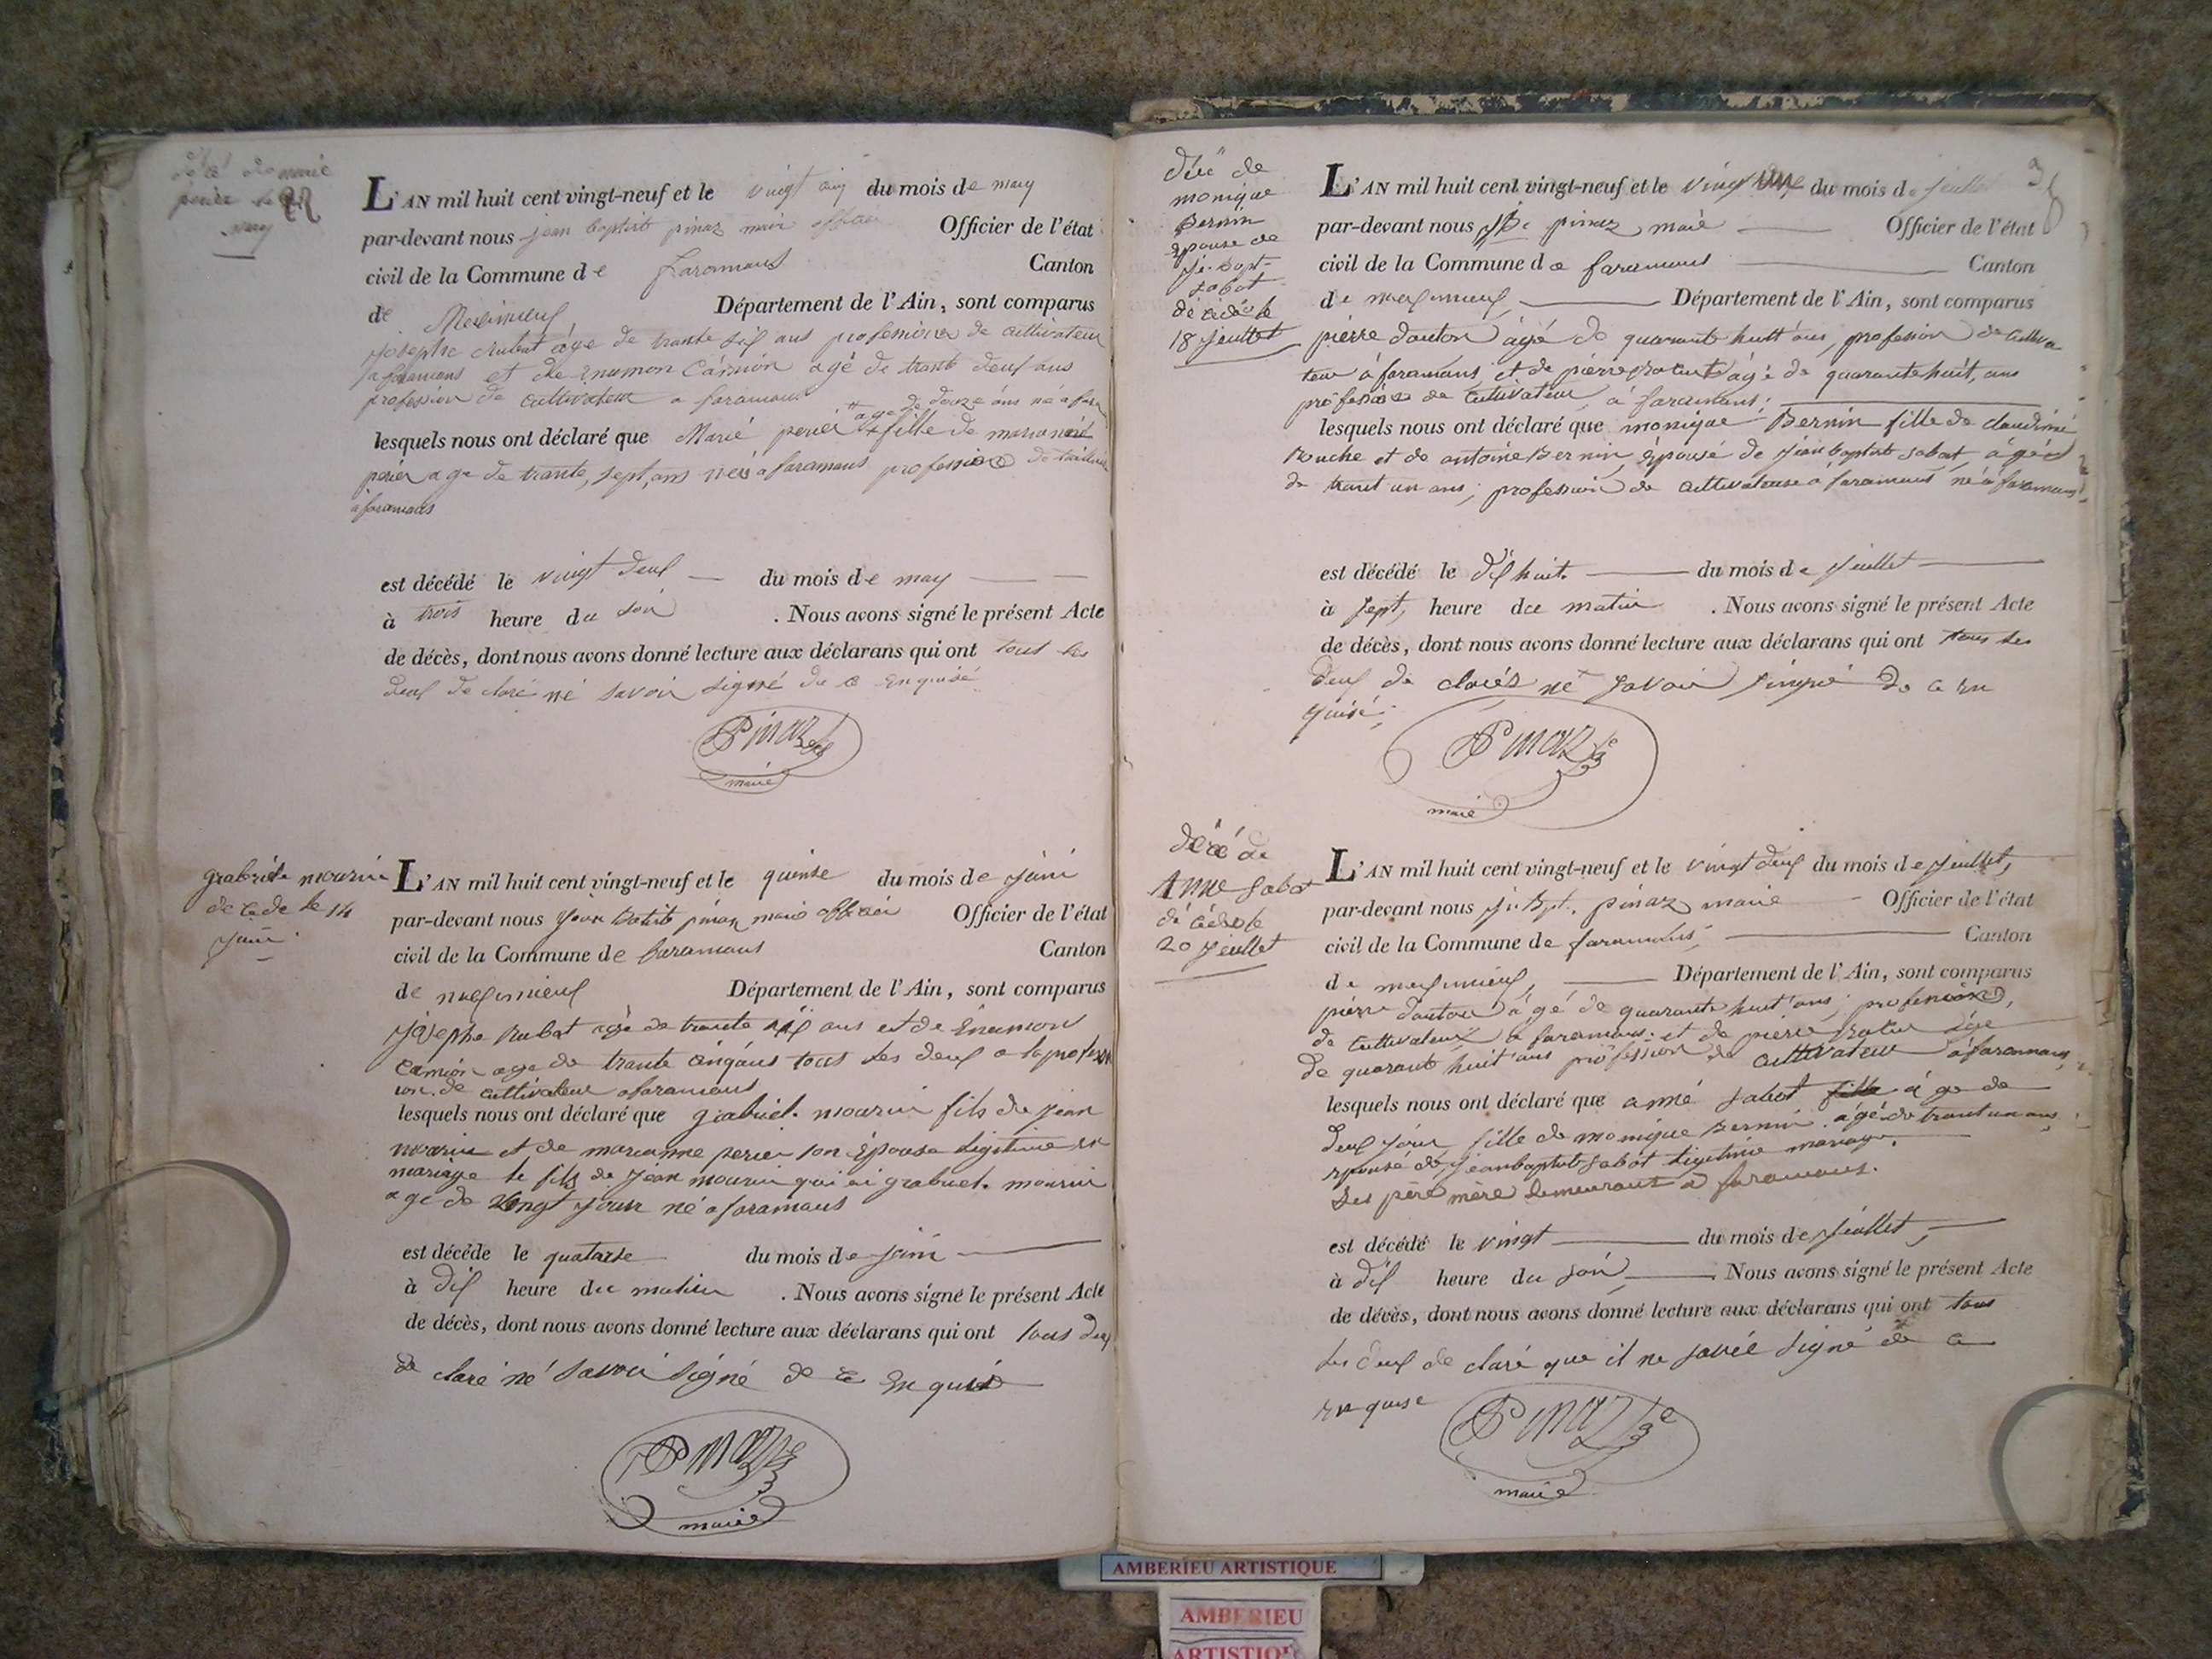 marie
perier le 22
may
L'AN mil huit cent vingt-neuf et le vingt cinq du mois de may
par-devant nous jean baptiste pinaz maire officier Officier de l'état
civil de la Commune de faramans Canton
de Meximieux Département de l'Ain, sont comparus
josephe rubat âge de trante six ans profession de cultivateur
a faramans et de enemon Camion agé de trante deux ans
profession de cultivateur a faramans
age de douze ans né a fara
lesquels nous ont déclaré que Marie perier fille de marianne
perier age de trante sept ans née a faramans profession de
a faramans
est décédé le vingt deux du mois de may
à trois heure du soir . Nous avons signé le présent Acte
de décès, dont nous avons donné lecture aux déclarans qui ont tout les
deux de claré né savoir signé de ce enquisé
Pinaz
maire
grabriele mourin
décede le 14
juin
L'AN mil huit cent vingt-neuf et le quinse du mois de juin
par-devant nous jean batiste pinaz maire officier Officier de l'état
civil de la Commune de faramans Canton
de meximieux Département de l'Ain, sont comparus
josephe rubat agé de trante six ans et de Enemon
Camion age de trante cinq ans tous les deux a la profess
ion de cultivateur a faramans
lesquels nous ont déclaré que grabriel mourin fils de jean
mourin et de marianne perier son Épouse légitime en
mariage le fils de jean mourin qui ai grabriel mourin
agé de vingt jour né a faramans
est décédé le quatorse du mois de juin
à dix heure du matin . Nous avons signé le présent Acte
de décès, dont nous avons donné lecture aux déclarans qui ont tous deux
de claré né savoir signé de ce En quisé
Pinaz
maire
décé de
monique
Bernin
épouse de
je. Bapt.
sabot
décédé le
18 juillet
L'AN mil huit cent vingt-neuf et le vingt du mois de juillet
par-devant nous pinaz maire Officier de l'état
civil de la Commune de faramans Canton
de meximieux Département de l'Ain, sont comparus
pierre danton âgé de quarante huit ans, profession de cultiva
teur a faramans et de pierre âgé de quarante huit ans
profession de Cultivateur a faramans
lesquels nous ont déclaré que monique Bernin fille de claudine
Rouche et de antoine Bernin, épousé de jean baptiste sabot, âgée
de trant un ans, profession de cultivateuse a faramans né a faramans
est décédé le dix huit du mois de juillet
à sept heure du matin . Nous avons signé le présent Acte
de décès, dont nous avons donné lecture aux déclarans qui ont tous les
deux de clarés né savoir signé de ce en
quisé
Pinaz
maire
décé de
Anne Sabot
décédé le
20 juillet
L'AN mil huit cent vingt-neuf et le vingt deux du mois de juillet,
par-devant nous je. Bpt. pinaz maire Officier de l'état
civil de la Commune de faramans Canton
de meximieux, Département de l'Ain, sont comparus
pierre danton agé de quarante huit ans, profession
de Cultivateur a faramans et de pierre âgé
de quarante huit ans profession de cultivateur a faramans
lesquels nous ont déclaré que anne sabot fille age de
deux jour fille de monique Bernin agé de trant un ans
epousé de jean baptiste sabot légitime mariage.
Les père mère demeurant a faramans.
est décédé le vingt du mois de juillet
à dix heure du soir . Nous avons signé le présent Acte
de décès, dont nous avons donné lecture aux déclarans qui ont tous
les deux de claré que il ne savée signé de ce
en quise
Pinaz
maire
AMBERIEU ARTISTIQUE
AMBERIEU